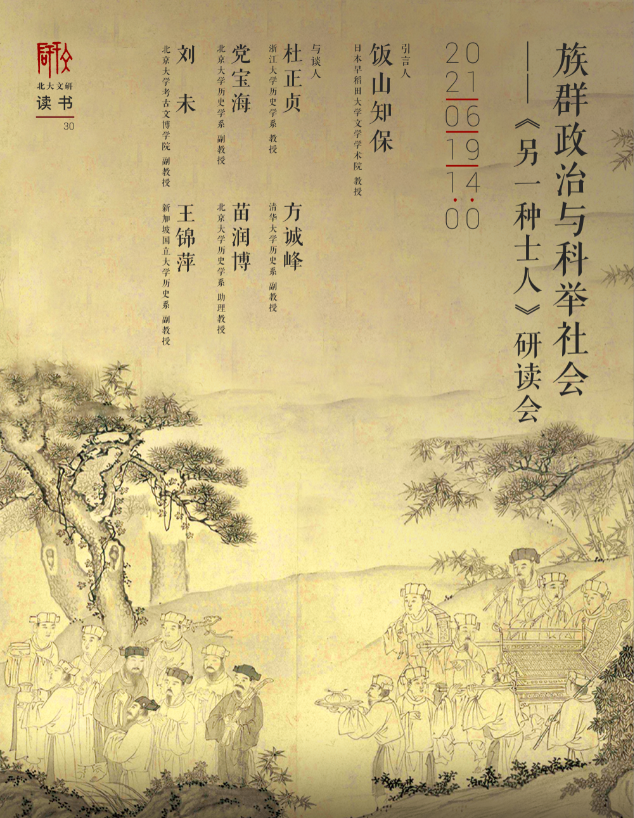 族群政治与科举社会
——《另一种士人》研读会
20
21
06
19
14:00
引言人
饭山知保
日本早稻田大学文学学术院 教授
与谈人
杜正贞
浙江大学历史学系 教授
方诚峰
清华大学历史系 副教授
党宝海
北京大学历史学系 副教授
苗润博
北京大学历史学系 助理教授
刘未
北京大学考古文博学院 副教授
王锦萍
新加坡国立大学历史系 副教授
北大文研
读书
30